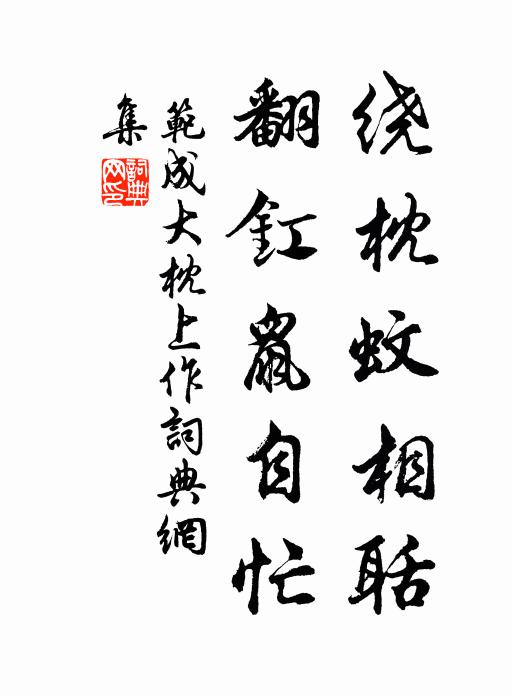 绕枕蚊相聒
翻釭鼠自忙
範成大枕上作詞典網
集
詞典
网印